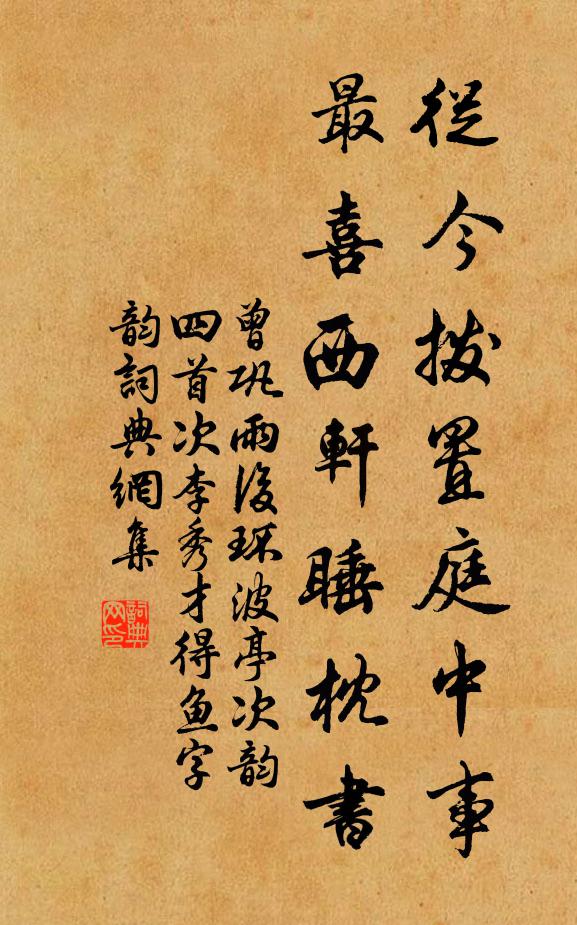 從今撥置庭中事
最喜西軒睡枕書
曾巩雨後環波亭次韵
四首次李秀才得鱼字
韵詞典網集
詞典网印